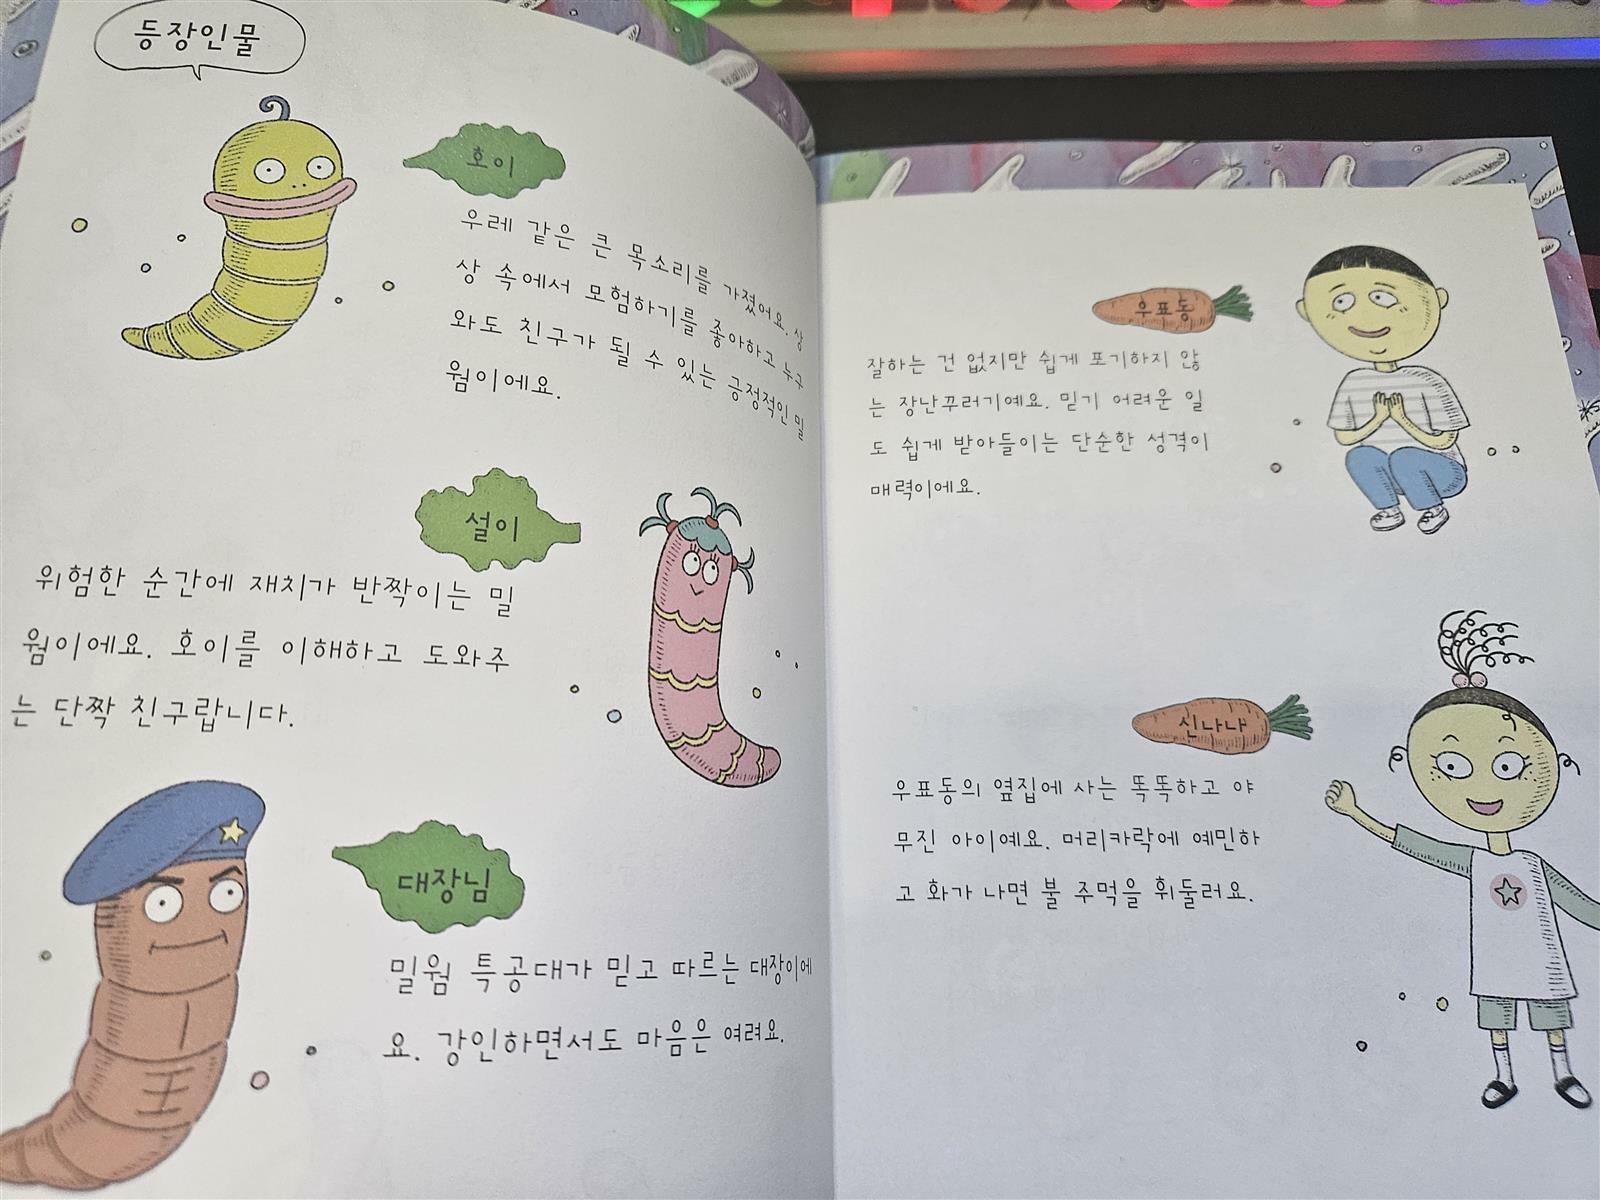 등장인물
호이
우레 같은 큰 목소리를 가졌어요. 상
상 속에서 모험하기를 좋아하고 누구
와도 친구가 될 수 있는 긍정적인 밀
웜이에요.
설이
위험한 순간에 재치가 반짝이는 밀
웜이에요. 호이를 이해하고 도와주
는 단짝 친구랍니다.
대장님
밀웜 특공대가 믿고 따르는 대장이에
요. 강인하면서도 마음은 여려요.
王
우표동
잘하는 건 없지만 쉽게 포기하지 않
는 장난꾸러기예요. 믿기 어려운 일
도 쉽게 받아들이는 단순한 성격이
매력이에요.
신나나
우표동의 옆집에 사는 똑똑하고 야
무진 아이예요. 머리카락에 예민하
고 화가 나면 불 주먹을 휘둘러요.